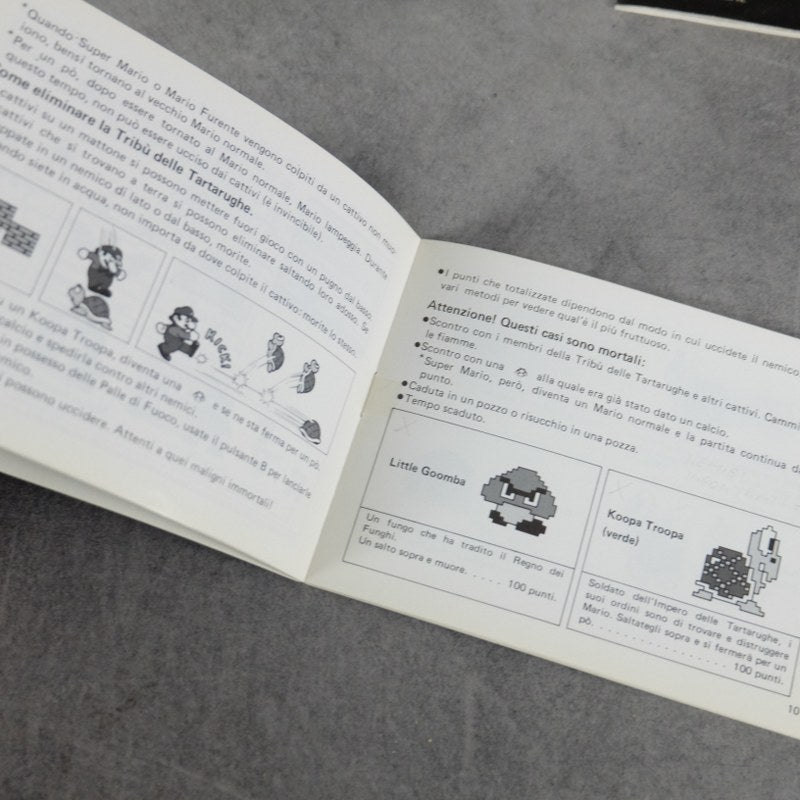 *Quando Super Mario o Mario Furente vengono colpiti da un cattivo non muo-
iono, bensì tornano al vecchio Mario normale.
*Per un pò, dopo essere tornato al Mario normale, Mario lampeggia. Durante
questo tempo, non può essere ucciso dai cattivi (è invincibile).
ome eliminare la Tribù delle Tartarughe.
cattivi su un mattone si possono mettere fuori gioco con un pugno dal basso.
cattivi che si trovano a terra si possono eliminare saltando loro adosso. Se
in un nemico di lato o dal basso, morite.
siete in acqua, non importa da dove colpite il cattivo: morite lo stesso.
KICK!
un Koopa Troopa, diventa una e se ne sta ferma per un pò.
calcio e spedirla contro altri nemici.
in possesso delle Palle di Fuoco, usate il pulsante B per lanciarle
possono uccidere. Attenti a quei maligni immortali!
●I punti che totalizzate dipendono dal modo in cui uccidete il nemico,
vari metodi per vedere qual'è il più fruttuoso.
Attenzione! Questi casi sono mortali:
●Scontro con i membri della Tribù delle Tartarughe e altri cattivi. Cammi
le fiamme.
●Scontro con una alla quale era già stato dato un calcio.
*Super Mario, però, diventa un Mario normale e la partita continua da
punto.
●Caduta in un pozzo o risucchio in una pozza.
●Tempo scaduto.
Little Goomba
Un fungo che ha tradito il Regno dei
Funghi.
Un salto sopra e muore. . . . . 100 punti.
Koopa Troopa
(verde)
Soldato dell'Impero delle Tartarughe, i
suoi ordini sono di trovare e distruggere
Mario. Saltategli sopra e si fermerà per un
pò. . . . . . . . . . . . . . . . . 100 punti.
10